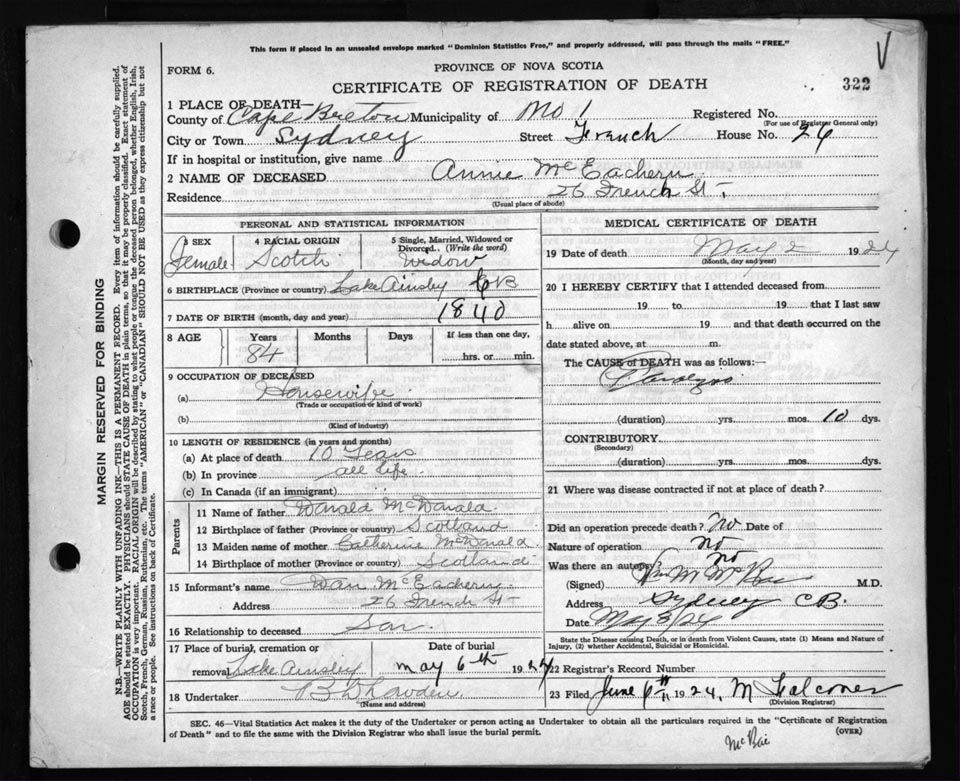 This form if placed in an unsealed envelope marked "Dominion Statistics Free," and properly addressed, will pass through the mails "FREE."
FORM 6.
PROVINCE OF NOVA SCOTIA
CERTIFICATE OF REGISTRATION OF DEATH
322
1 PLACE OF DEATH—
County of Cape Breton Municipality of No 1 Registered No.
(For use of Registrar General only)
City or Town Sydney Street French House No. 26
If in hospital or institution, give name
2 NAME OF DECEASED Annie McEachern
Residence 26 French St.
(Usual place of abode)
PERSONAL AND STATISTICAL INFORMATION
3 SEX Female
4 RACIAL ORIGIN Scotch
5 Single, Married, Widowed or Divorced. (Write the word) widow
6 BIRTHPLACE (Province or country) Lake Ainsley CB
7 DATE OF BIRTH (month, day and year) 1840
8 AGE Years Months Days If less than one day,
84 hrs. or min.
9 OCCUPATION OF DECEASED
(a) Housewife
(Trade or occupation or kind of work)
(b)
(Kind of industry)
10 LENGTH OF RESIDENCE (in years and months)
(a) At place of death 10 Years
(b) In province all life.
(c) In Canada (if an immigrant)
Parents
11 Name of father Donald McDonald
12 Birthplace of father (Province or country) Scotland
13 Maiden name of mother Catherine McDonald
14 Birthplace of mother (Province or country) Scotland
15 Informant's name Dan McEachern
Address 26 French St
16 Relationship to deceased Son
17 Place of burial, cremation or removal Lake Ainsley
Date of burial May 6th 1924
18 Undertaker
(Name and address)
MEDICAL CERTIFICATE OF DEATH
19 Date of death May 2 1924
(Month, day and year)
20 I HEREBY CERTIFY that I attended deceased from
19 to 19 that I last saw
h alive on 19 and that death occurred on the
date stated above, at m.
The CAUSE of DEATH was as follows:—
Paralysis
(duration) yrs. mos. 10 dys.
CONTRIBUTORY
(Secondary)
(duration) yrs. mos. dys.
21 Where was disease contracted if not at place of death?
Did an operation precede death? no Date of
Nature of operation no
Was there an autopsy? no
(Signed) M.D.
Address Sydney CB.
Date May 3/24
State the Disease causing Death, or in death from Violent Causes, state (1) Means and Nature of
Injury, (2) whether Accidental, Suicidal or Homicidal.
22 Registrar's Record Number
23 Filed June 6th 1924. M Falconer
(Division Registrar)
SEC. 46—Vital Statistics Act makes it the duty of the Undertaker or person acting as Undertaker to obtain all the particulars required in the "Certificate of Registration
of Death" and to file the same with the Division Registrar who shall issue the burial permit.
(OVER)
MARGIN RESERVED FOR BINDING
N.B.—WRITE PLAINLY WITH UNFADING INK—THIS IS A PERMANENT RECORD. Every item of information should be carefully supplied.
AGE should be stated EXACTLY. PHYSICIANS should STATE CAUSE OF DEATH in plain terms, so that it may be properly classified. Exact statement of
OCCUPATION is very important. RACIAL ORIGIN will be described by stating to what people or tongue the deceased person belonged, whether English, Irish,
Scotch, French, German, Russian, Ruthenian, etc. The terms "AMERICAN" or "CANADIAN" SHOULD NOT BE USED as they express citizenship but not
a race or people. See instructions on back of Certificate.